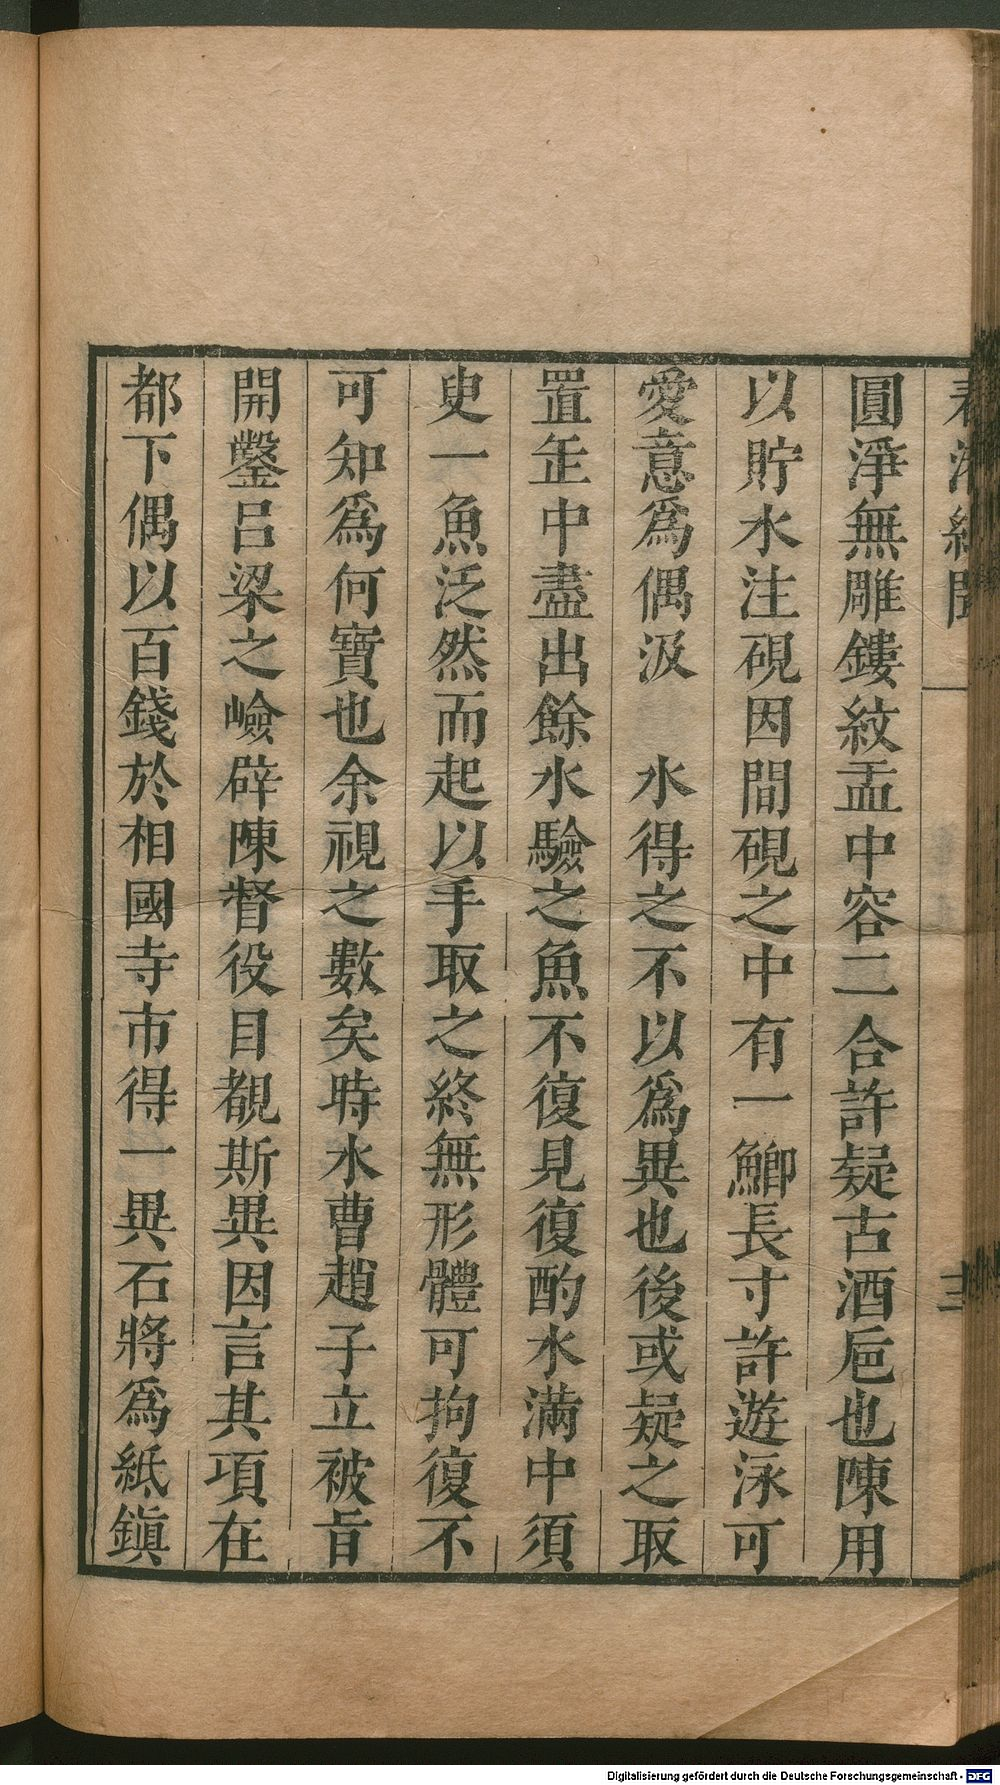 春渚紀聞
圓淨無雕鏤紋盂中容二合許疑古酒巵也陳用
以貯水注硯因間硯之中有一鯽長寸許遊泳可
愛意爲偶汲 水得之不以爲異也後或疑之取
置缶中盡出餘水驗之魚不復見復酌水滿中須
臾一魚泛然而起以手取之終無形體可拘復不
可知爲何寶也余視之數矣時水曹趙子立被旨
開鑿呂梁之嶮辟陳督役目覩斯異因言其項在
都下偶以百錢於相國寺市得一異石將爲紙鎭
Digitalisierung gefördert durch die Deutsche Forschungsgemeinschaft - DFG